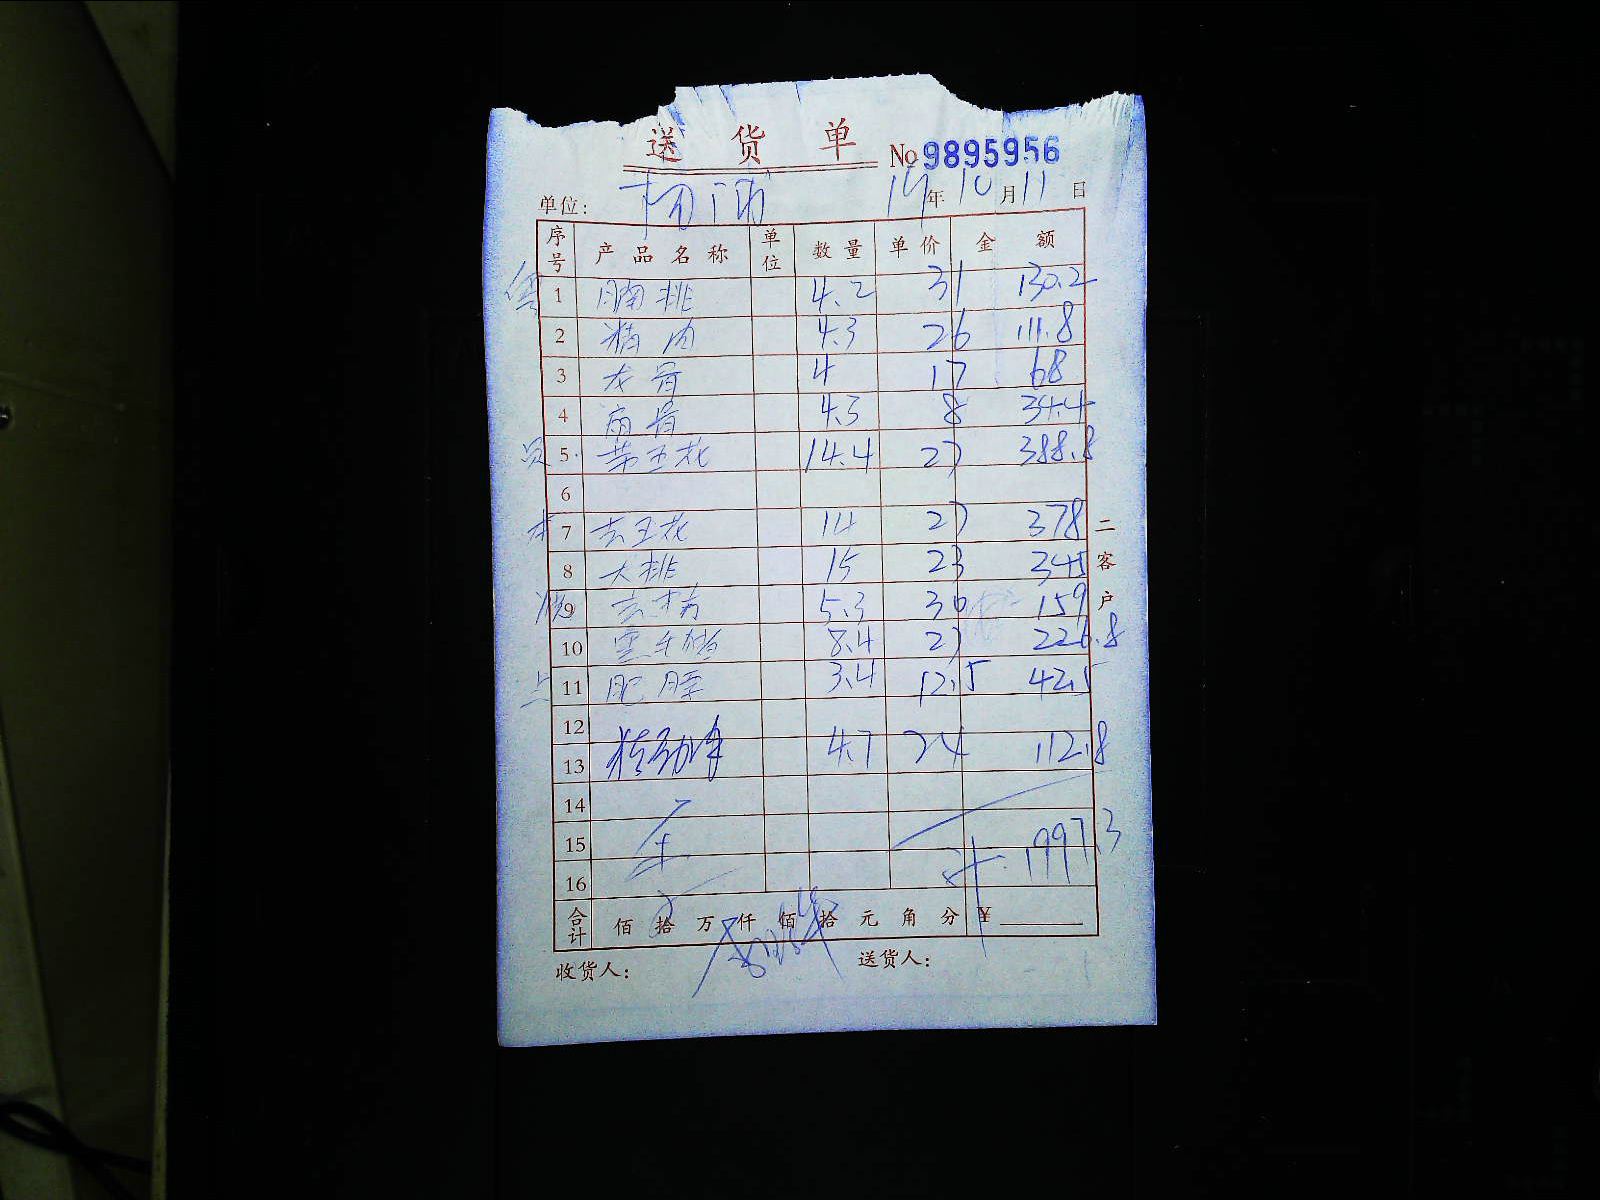 送货单 No 9895956
单位: 19年10月11日
序号 产品名称 单位 数量 单价 金额
1 腩排 4.2 31 130.2
2 精肉 4.3 26 111.8
3 龙骨 4 17 68
4 扇骨 4.3 8 34.4
5 带五花 14.4 27 388.8
6
7 去五花 14 27 378
8 大排 15 23 345
9 5.3 30 159
10 8.4 27 226.8
11 肥膘 3.4 12.5 42.5
12
13 4.7 24 112.8
14
15
16 1997.3
合计 佰拾万仟佰拾元角分 ¥
收货人: 送货人:
二客户